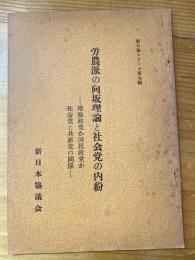 新日協シリーズ第九輯
労農派の向坂理論と社会党の内紛
―階級政党か国民政党か
社会党と共産党の関係―
新日本協議会